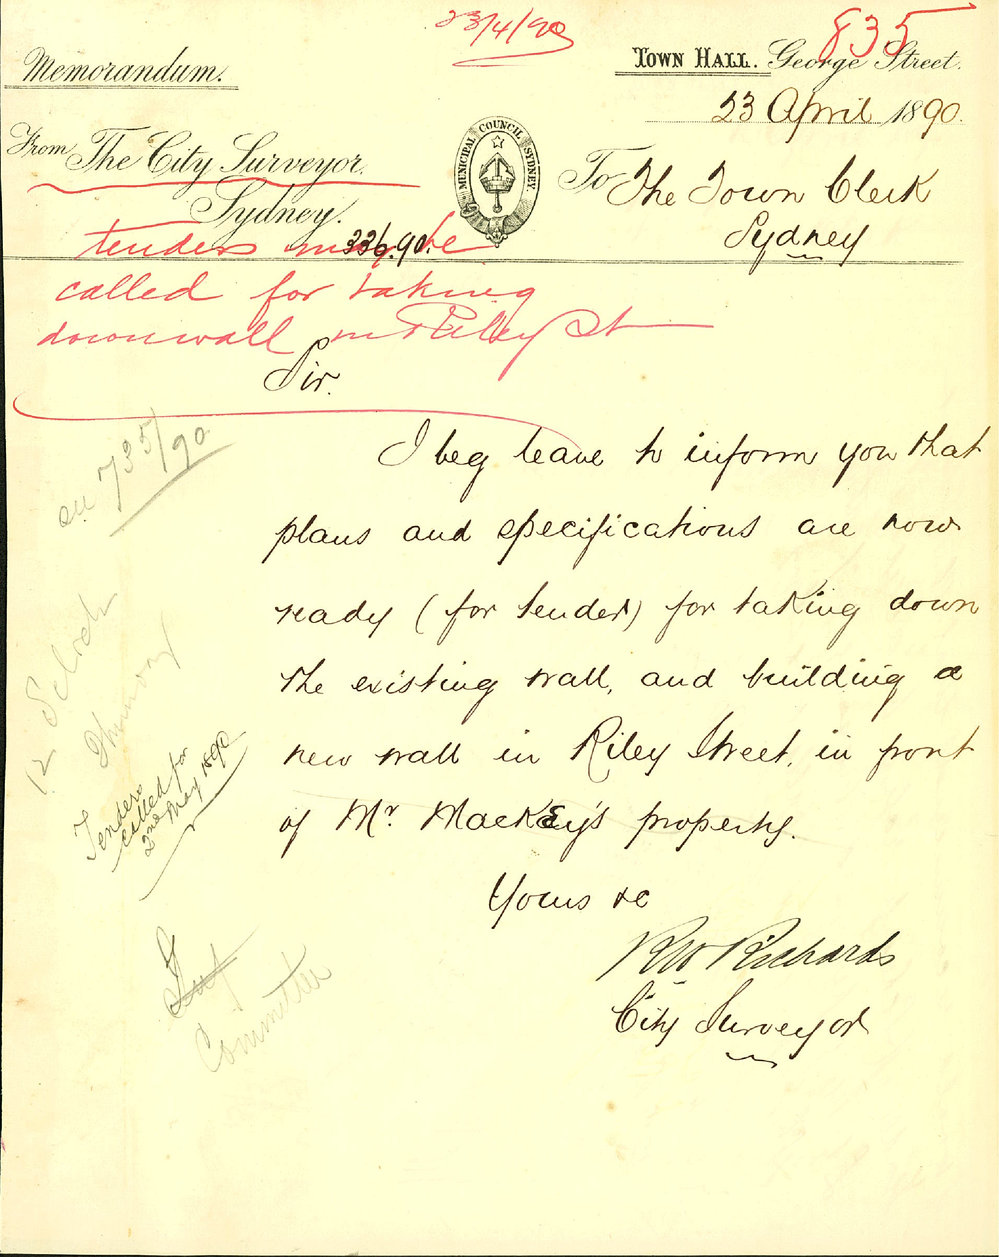 23/4/90
835
Memorandum.
TOWN HALL. George Street.
23 April 1890.
From The City Surveyor.
Sydney.
MUNICIPAL COUNCIL SYDNEY
To The Town Clerk
Sydney
336.90.
tenders may be
called for taking
down wall in Riley St
Sir.
I beg leave to inform you that
plans and specifications are now
ready (for tender) for taking down
the existing wall, and building a
new wall in Riley Street, in front
of Mr. Mackey's property.
Yours &c
RW Richards
City Surveyor
735/90
12
Tenders
called for
2nd May 1890
Committee